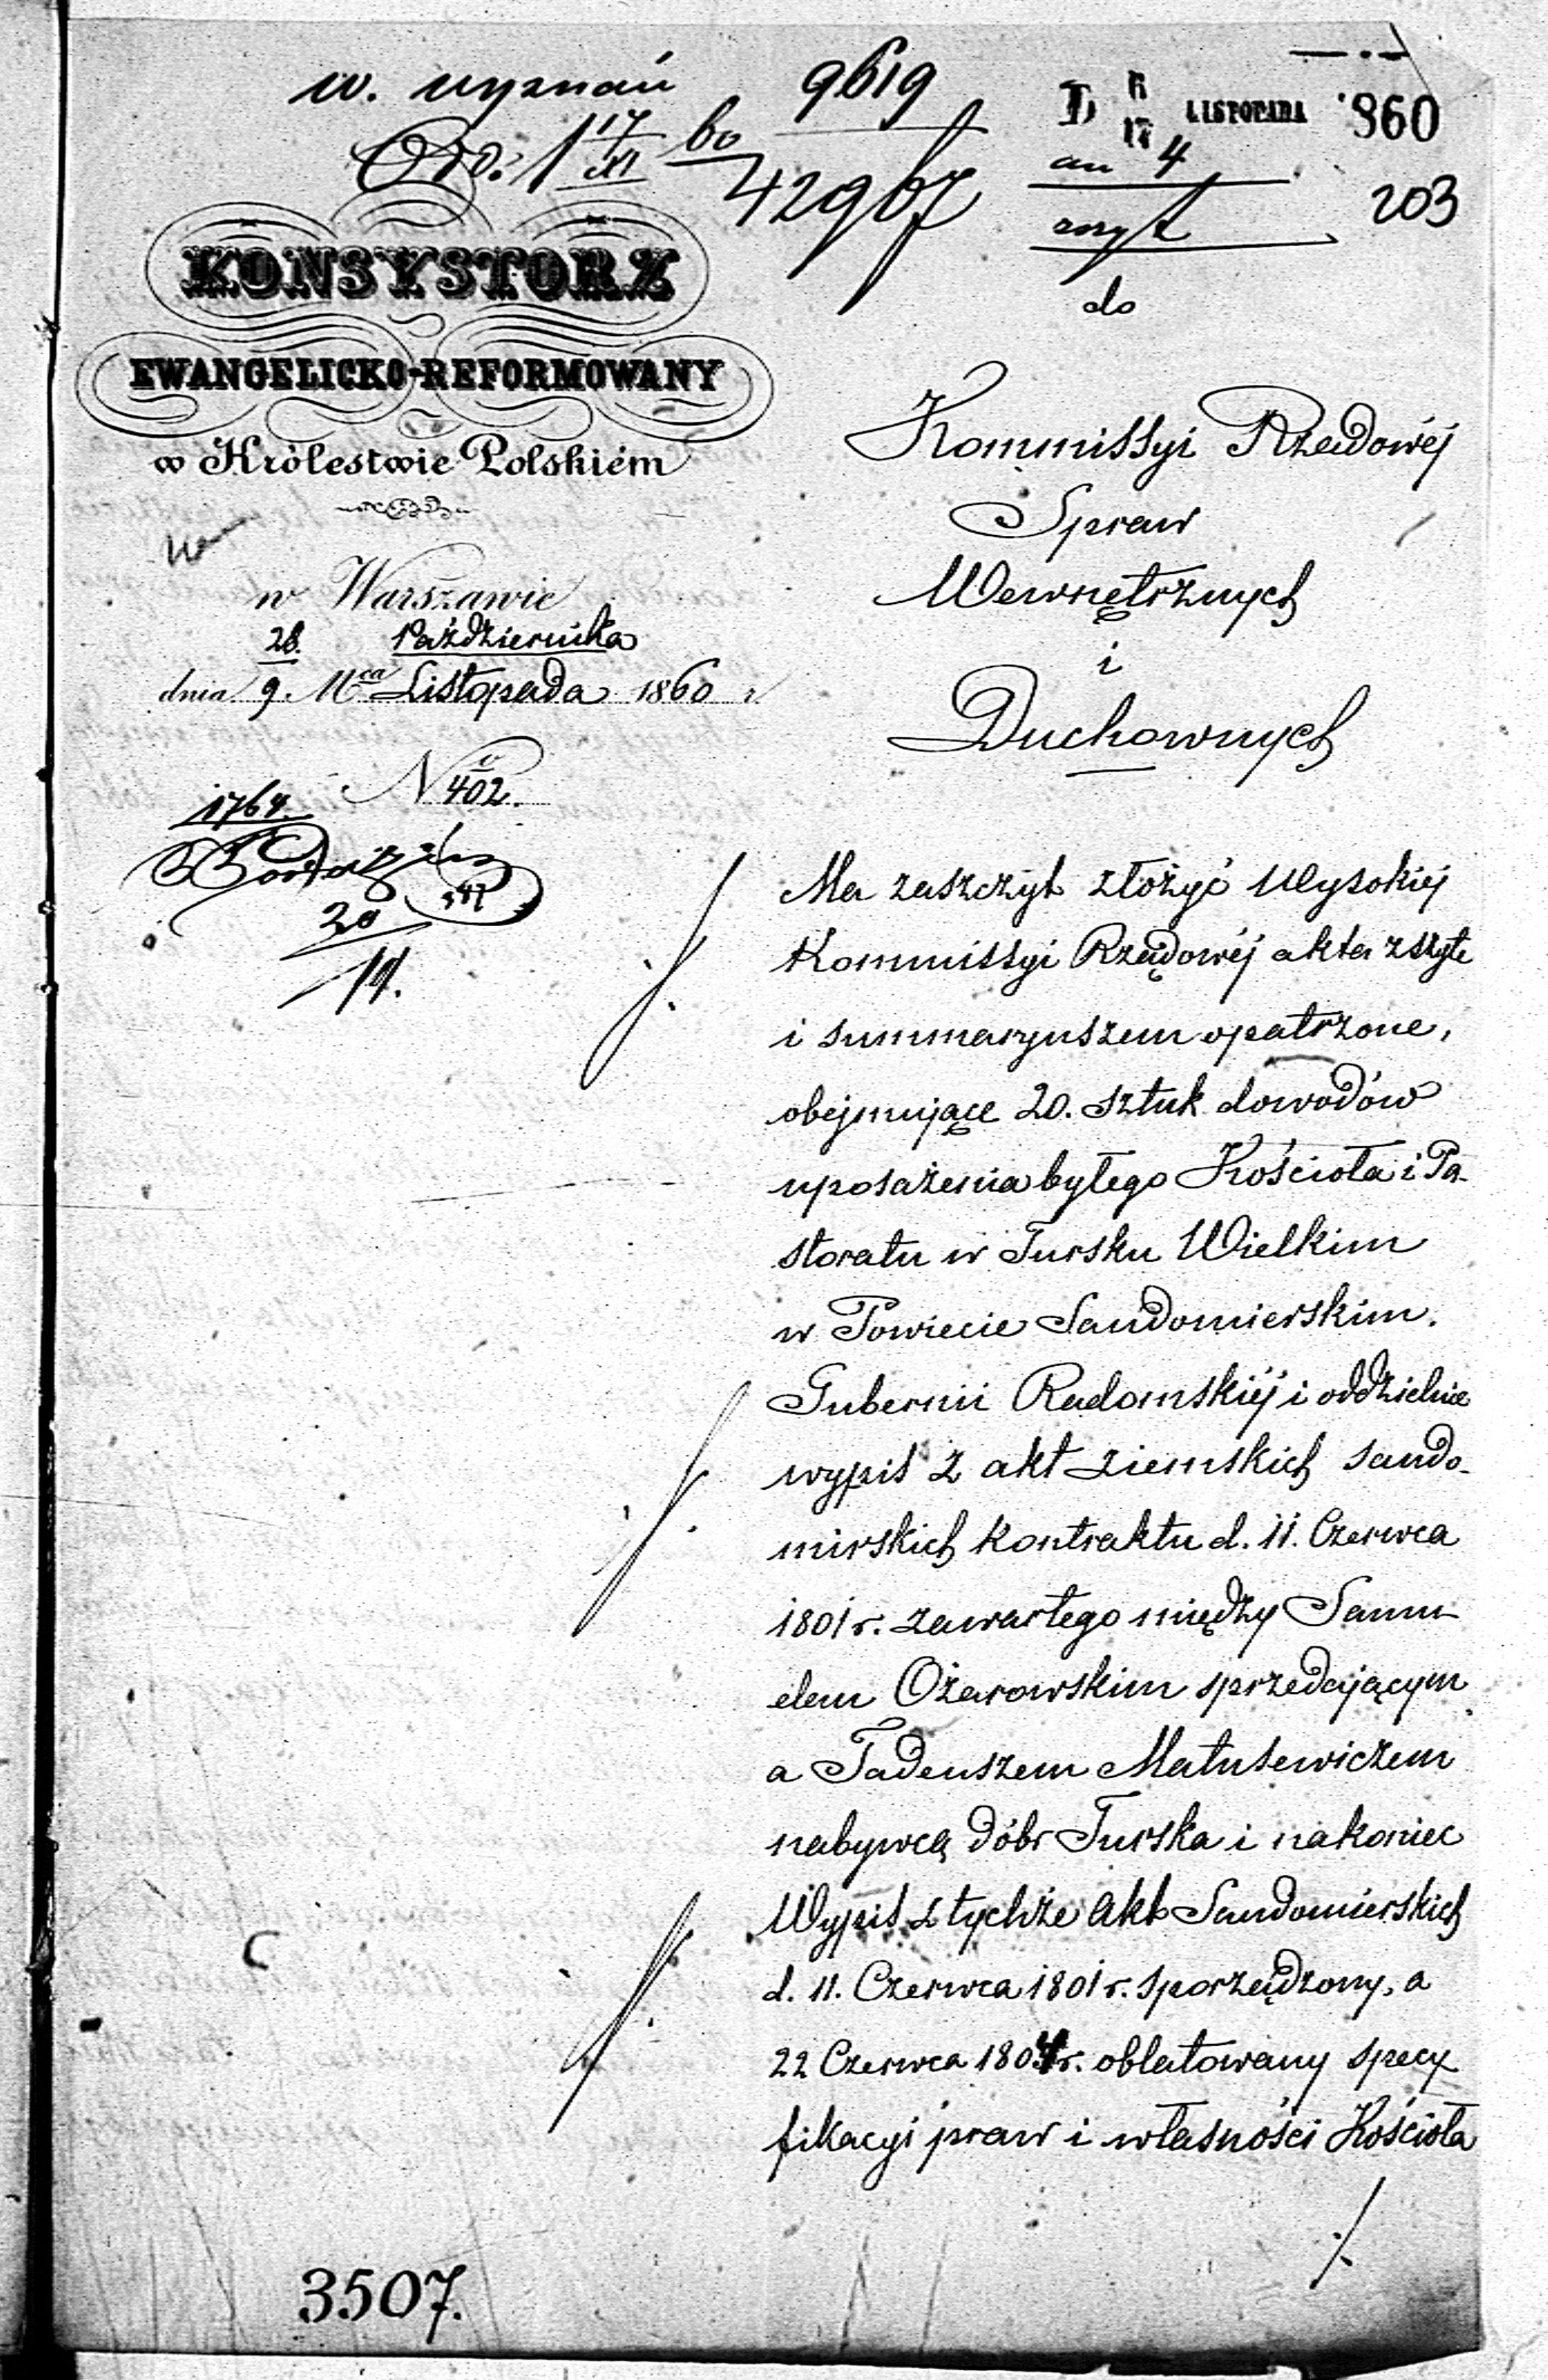 w. wyznań 9619
17/XI 60
42967
D LISTOPADA 860
an 4
203
zszyt
do
KONSYSTORZ
EWANGELICKO-REFORMOWANY
w Królestwie Polskiém
w Warszawie
28. Października
dnia 9. Mca Listopada 1860 r
No 402.
1764.
20
11.
Kommissyi Rządowéj
Spraw
Wewnętrznych
i
Duchownych
Ma zaszczyt złożyć Wysokiéj
Kommissyi Rządowéj akta zszyte
i summaryuszem opatrzone,
obejmujące 20. sztuk dowodów
uposażenia byłego Kościoła i Pa-
storatu w Tursku Wielkim
w Powiecie Sandomierskim.
Gubernii Radomskiéj i oddzielnie
wypis z akt ziemskich sando-
mirskich kontraktu d. 11. Czerwca
1801 r. zawartego między Samu-
elem Ożarowskim sprzedającym
a Tadeuszem Matusewiczem
nabywcą dóbr Turska i nakoniec
Wypis z tychże Akt Sandomierskich
d. 11. Czerwca 1801 r. sporządzony, a
22 Czerwca 1804 r. oblatowany specy
fikacyi praw i własności Kościoła
./.
3507.